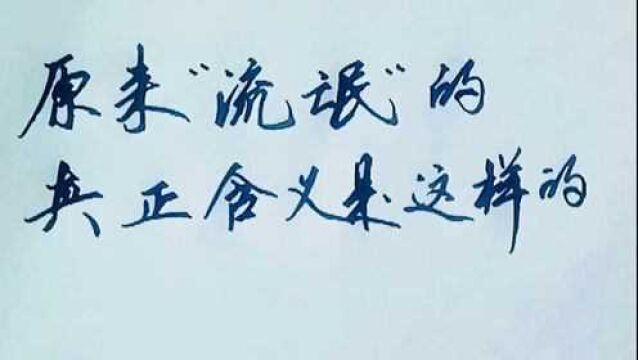 原来“流氓”的
真正含义是这样的